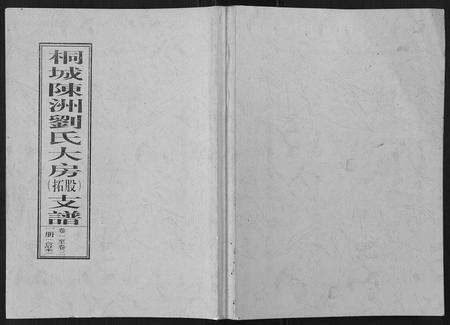 桐城陳洲劉氏大房(拓股)支譜
卷一至卷二